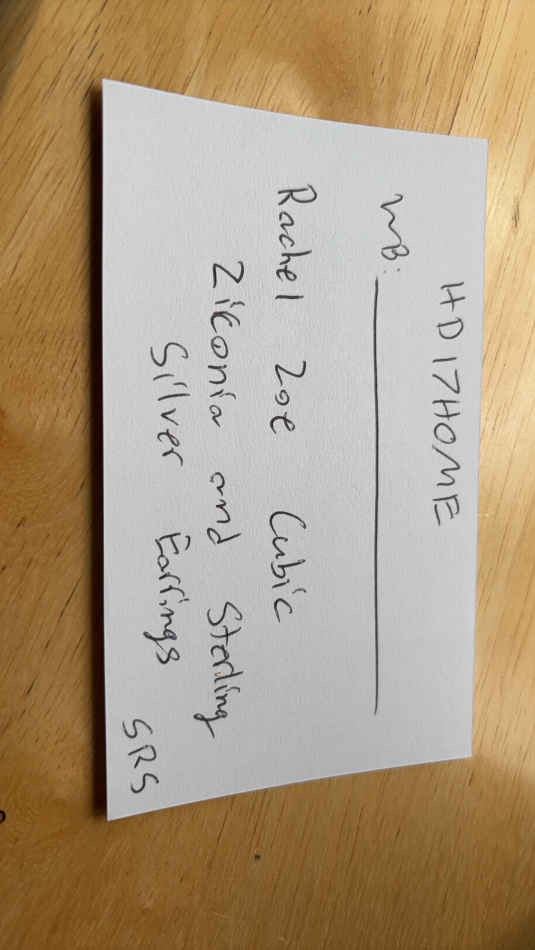 HD17HOME
WB: ____________
Rachel Zoe Cubic
Ziconia and Sterling
Silver Earrings
SRS